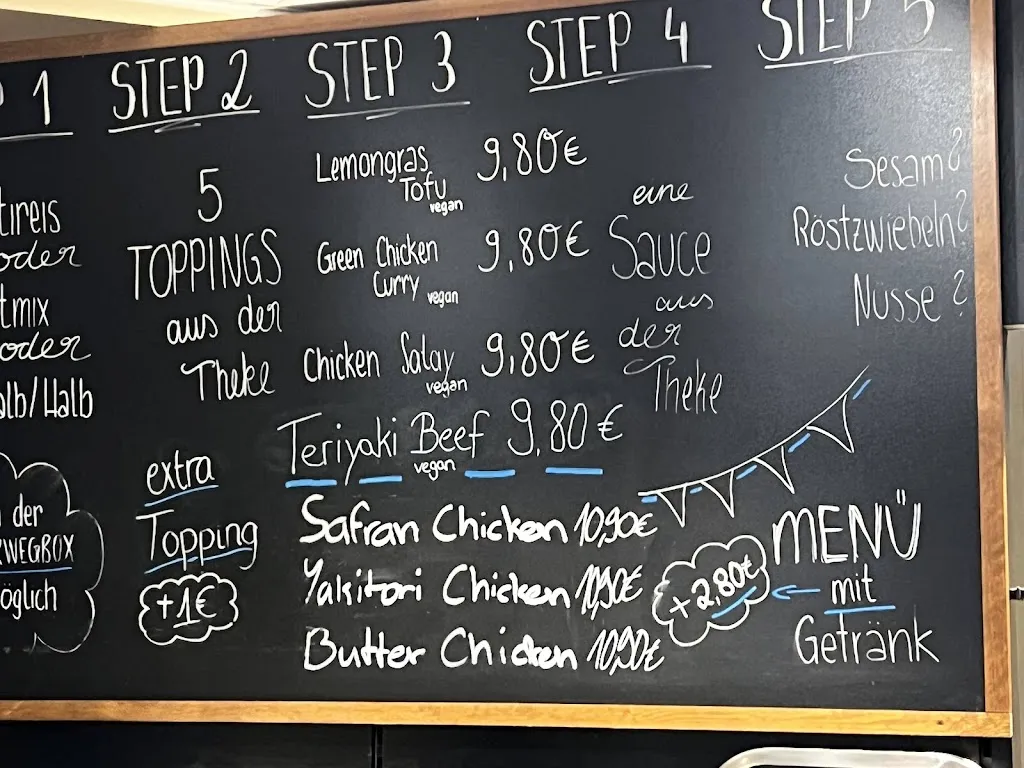 P 1
tireis
oder
tmix
oder
alb/Halb
der
RWEGBOX
öglich
STEP 2
5
TOPPINGS
aus der
Theke
extra
Topping
+1€
STEP 3
Lemongras 9,80€
Tofu
vegan
Green Chicken 9,80€
Curry vegan
Chicken Satay 9,80€
vegan
Teriyaki Beef 9,80€
vegan
Safran Chicken 10,90€
Yakitori Chicken 10,90€
Butter Chicken 10,90€
STEP 4
eine
Sauce
aus
der
Theke
STEP 5
Sesam?
Röstzwiebeln?
Nüsse?
MENÜ
+2,80€ mit
Getränk